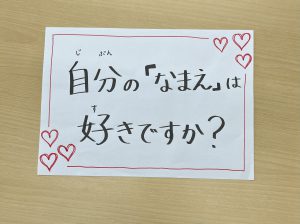 じ ぶん
自分の「なまえ」は
す
好きですか?